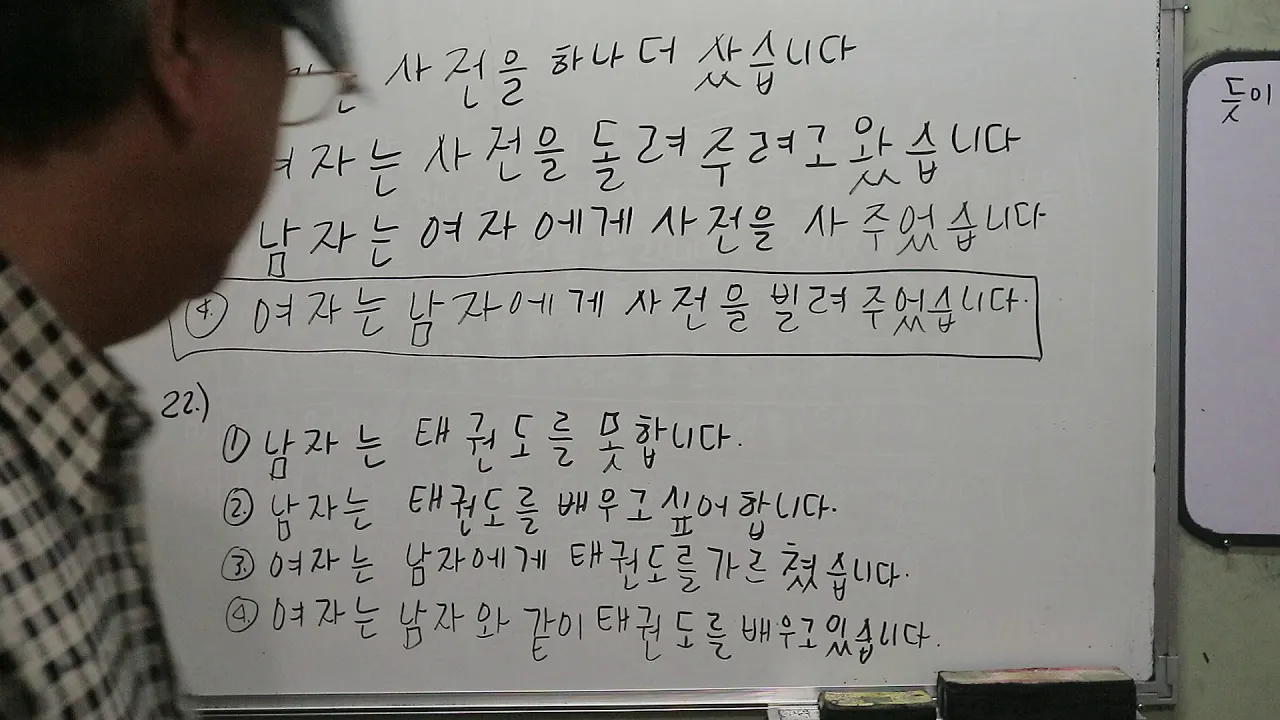 사전을 하나 더 샀습니다
여자는 사전을 돌려주려고 왔습니다
남자는 여자에게 사전을 사 주었습니다
④. 여자는 남자에게 사전을 빌려 주었습니다.
22.)
① 남자는 태권도를 못합니다.
②. 남자는 태권도를 배우고 싶어합니다.
③. 여자는 남자에게 태권도를 가르쳤습니다.
④. 여자는 남자와 같이 태권도를 배우고있습니다.
듯이